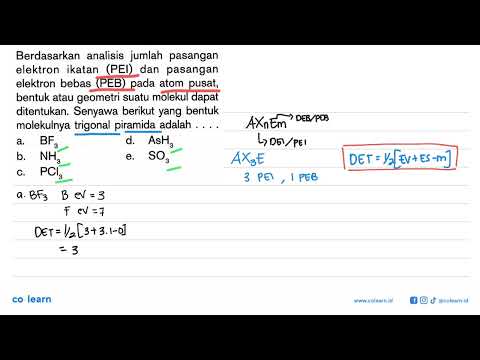 Berdasarkan analisis jumlah pasangan
elektron ikatan (PEI) dan pasangan
elektron bebas (PEB) pada atom pusat,
bentuk atau geometri suatu molekul dapat
ditentukan. Senyawa berikut yang bentuk
molekulnya trigonal piramida adalah . . . .
a. BF₃ d. AsH₃
b. NH₃ e. SO₃
c. PCl₃
a. BF₃ B eV = 3
F eV = 7
DET = 1/2 [3 + 3.1 - 0]
= 3
AXnEm → DEB/PEB
↳ DEI/PEI
AX₃E
3 PEI, 1 PEB
DET = 1/2 [EV + ES - m]
co learn
www.colearn.id
@colearn.id